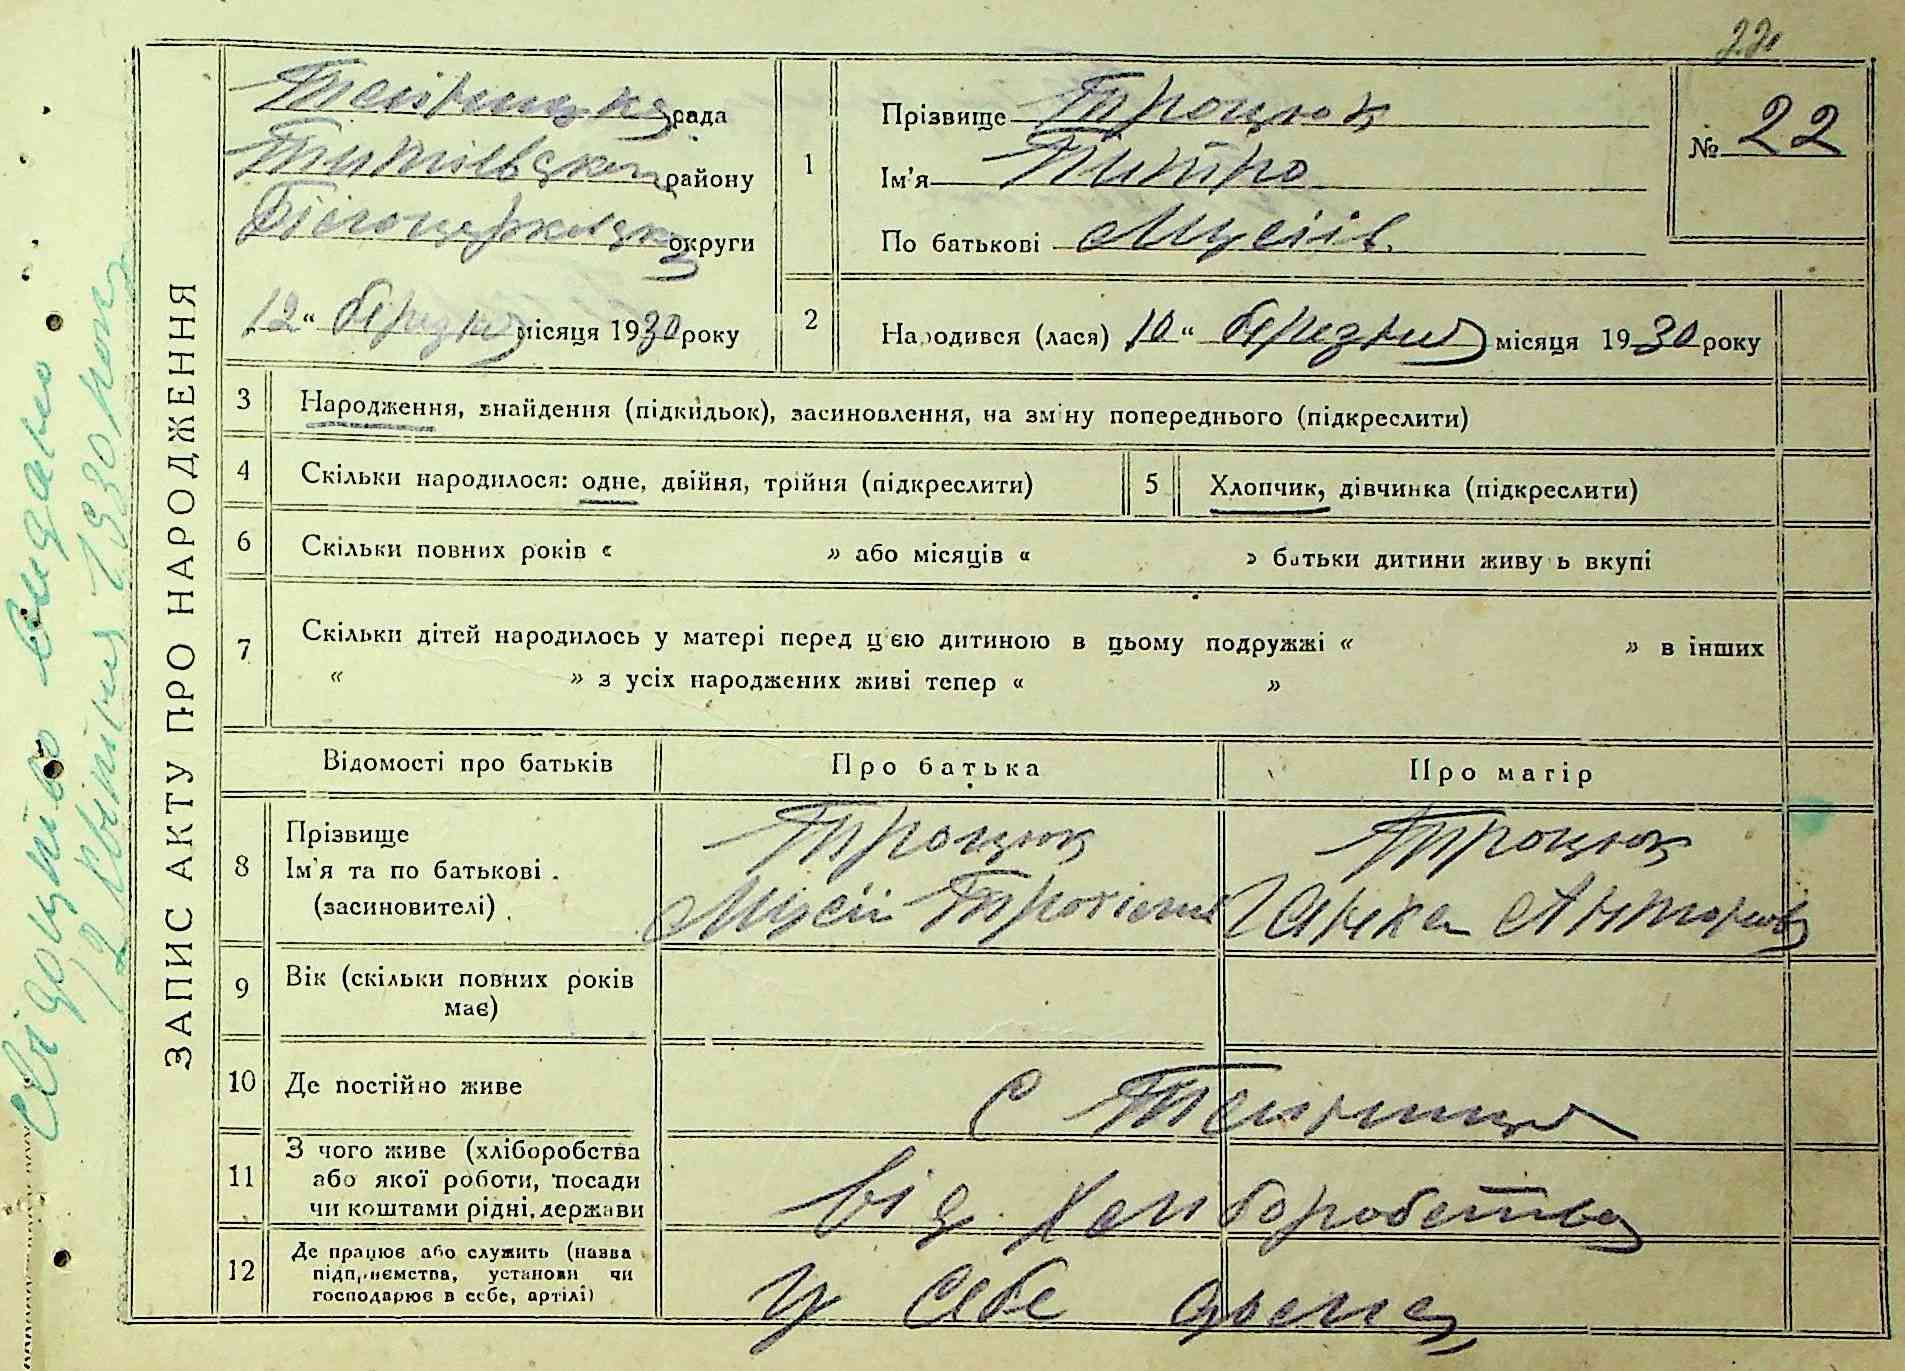 22
ЗАПИС АКТУ ПРО НАРОДЖЕННЯ
рада
району
Білоцерковської округи
12 " березня місяця 1930 року
1
Прізвище Троцюк
Ім'я Питро
По батькові Мусіїв.
№ 22
2
Народився (лася) 10 " березня місяця 1930 року
3
Народження, знайдення (підкидьок), засиновлення, на зміну попереднього (підкреслити)
4
Скільки народилося: одне, двійня, трійня (підкреслити)
5
Хлопчик, дівчинка (підкреслити)
6
Скільки повних років « » або місяців « » батьки дитини живуть вкупі
7
Скільки дітей народилось у матері перед цією дитиною в цьому подружжі « » в інших
« » з усіх народжених живі тепер « »
Відомості про батьків
Про батька
Про матір
8
Прізвище
Ім'я та по батькові
(засиновителі)
Троцюк
Мусій
Троцюк
9
Вік (скільки повних років
має)
10
Де постійно живе
с
11
З чого живе (хліборобства
або якої роботи, посади
чи коштами рідні, держави
від
12
Де працює або служить (назва
підприємства, установи чи
господарює в себе, артілі)
У себе дома
Свідоцтво видано
12 квітня 1930 року